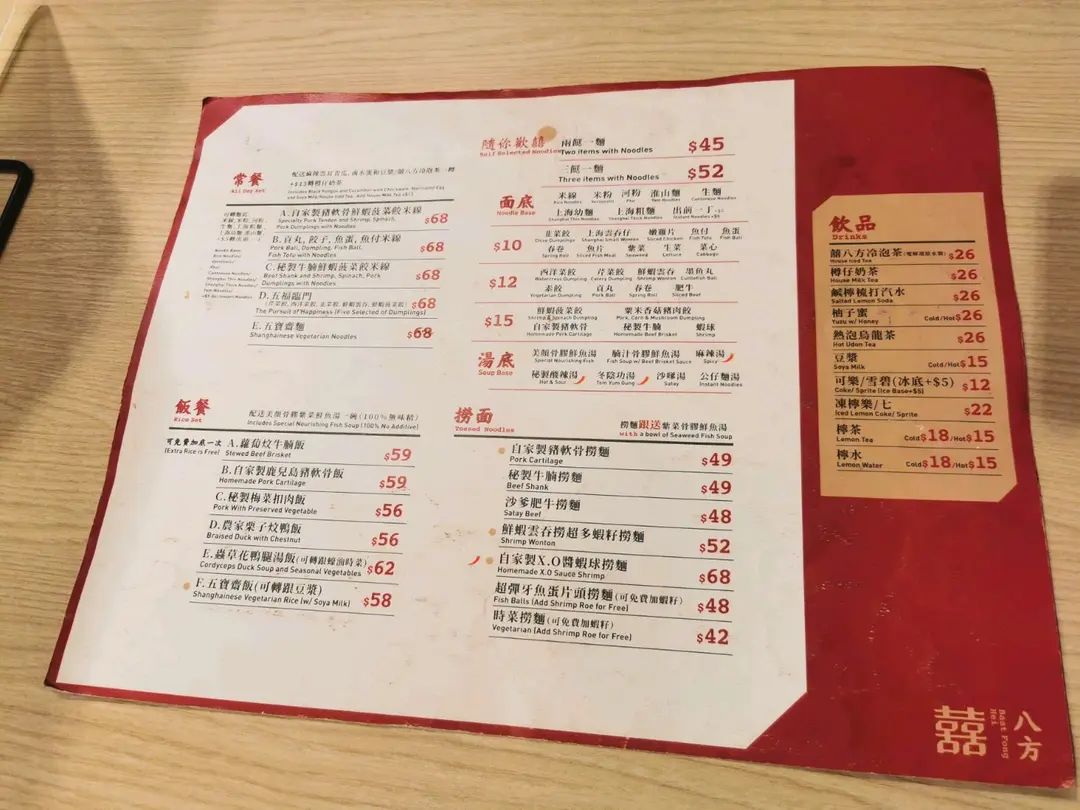 常餐
All Day Set
+$13轉樽仔奶茶
A.自家製豬軟骨鮮蝦菠菜餃米線
$68
Specialty Pork Tendon and Shrimp, Spinach,
Pork Dumplings with Noodles
B.貢丸，餃子，魚蛋，魚付米線
$68
Pork Ball, Dumpling, Fish Ball,
Fish Tofu with Noodles
C.秘製牛腩鮮蝦菠菜餃米線
$68
Beef Shank and Shrimp, Spinach, Pork
Dumplings with Noodles
D.五福臨門
$68
The Pursuit of Happiness (Five Selected of Dumplings)
E.五寶齋麵
$68
Shanghainese Vegetarian Noodles
飯餐
Rice Set
配送美顏骨膠紫菜鮮魚湯一碗(100%無味精)
Includes Special Nourishing Fish Soup (100% No Additive)
可免費加底一次
(Extra Rice is Free)
A.蘿蔔炆牛腩飯
$59
Stewed Beef Brisket
B.自家製鹿兒島豬軟骨飯
$59
Homemade Pork Cartilage
C.秘製梅菜扣肉飯
$56
Pork With Preserved Vegetable
D.農家栗子炆鴨飯
$56
Braised Duck with Chestnut
E.蟲草花鴨腿湯飯(可轉跟蠔油時菜)
$62
Cordyceps Duck Soup and Seasonal Vegetables
F.五寶齋飯(可轉跟豆漿)
$58
Shanghainese Vegetarian Rice (w/ Soya Milk)
隨你歡囍
Self Selected Noodles
兩餸一麵
$45
Two items with Noodles
三餸一麵
$52
Three items with Noodles
面底
Noodle Base
米線 米粉 河粉 淮山麵 生麵
上海幼麵 上海粗麵 出前一丁+$5
Shanghai Thin Noodles Shanghai Thick Noodles Instant Noodles +$5
$10
韭菜餃 上海雲吞仔 嫩雞片 魚付 魚蛋
Chive Dumplings Shanghai Small Wonton Sliced Chicken Fish Tofu Fish Ball
春卷 魚片 紫菜 生菜 菜心
Spring Roll Sliced Fish Meat Seaweed Lettuce Cabbage
$12
西洋菜餃 芹菜餃 鮮蝦雲吞 墨魚丸
Watercress Dumpling Celery Dumpling Shrimp Wonton Cuttlefish Ball
素餃 貢丸 春卷 肥牛
Vegetarian Dumpling Pork Ball Spring Roll Sliced Beef
$15
鮮蝦菠菜餃 粟米香菇豬肉餃
Shrimp & Spinach Dumpling Pork, Corn & Mushroom Dumpling
自家製豬軟骨 秘製牛腩 蝦球
Homemade Pork Cartilage Homemade Beef Brisket Shrimp
湯底
Soup Base
美顏骨膠鮮魚湯 腩汁骨膠鮮魚湯 麻辣湯
Special Nourishing Fish Fish Soup w/ Beef Brisket Sauce Spicy
秘製酸辣湯 冬陰功湯 沙嗲湯 公仔麵湯
Hot & Sour Tom Yum Gung Satay Instant Noodles
撈面
Tossed Noodles
撈麵跟送紫菜骨膠鮮魚湯
with a bowl of Seaweed Fish Soup
自家製豬軟骨撈麵
$49
Pork Cartilage
秘製牛腩撈麵
$49
Beef Shank
沙爹肥牛撈麵
$48
Satay Beef
鮮蝦雲吞撈超多蝦籽撈麵
$52
Shrimp Wonton
自家製X.O醬蝦球撈麵
$68
Homemade X.O Sauce Shrimp
超彈牙魚蛋片頭撈麵(可免費加蝦籽)
$48
Fish Balls (Add Shrimp Roe for Free)
時菜撈麵(可免費加蝦籽)
$42
Vegetarian (Add Shrimp Roe for Free)
飲品
Drinks
囍八方冷泡茶
$26
House Iced Tea
樽仔奶茶
$26
House Milk Tea
鹹檸梳打汽水
$26
Salted Lemon Soda
柚子蜜
Cold/Hot$26
Yuzu w/ Honey
熱泡烏龍茶
$26
Hot Udon Tea
豆漿
Cold/Hot$15
Soya Milk
可樂/雪碧(冰底+$5)
$12
Coke/ Sprite (Ice Base+$5)
凍檸樂/七
$22
Iced Lemon Coke/ Sprite
檸茶
Cold$18/Hot$15
Lemon Tea
檸水
Cold$18/Hot$15
Lemon Water
囍
Baat Fong
Hei
八方